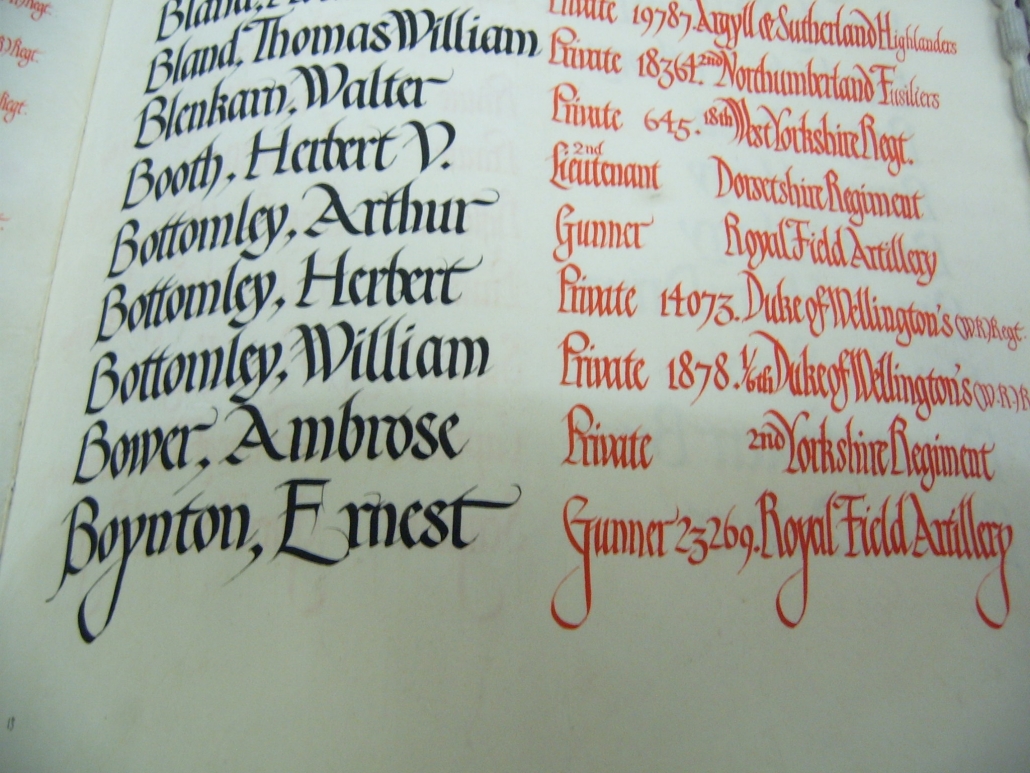 Bland, Private 19787. Argyll & Sutherland Highlanders
Bland, Thomas William Private 18364. 2nd Northumberland Fusiliers
Blenkarn, Walter Private 645. 18th West Yorkshire Regt.
Booth, Herbert V. 2nd Lieutenant Dorsetshire Regiment
Bottomley, Arthur Gunner Royal Field Artillery
Bottomley, Herbert Private 14073. Duke of Wellington's (W.R) Regt.
Bottomley, William Private 1878. 1/6th Duke of Wellington's (W.R) R
Bower, Ambrose Private 2nd Yorkshire Regiment
Boynton, Ernest Gunner 23269. Royal Field Artillery
13